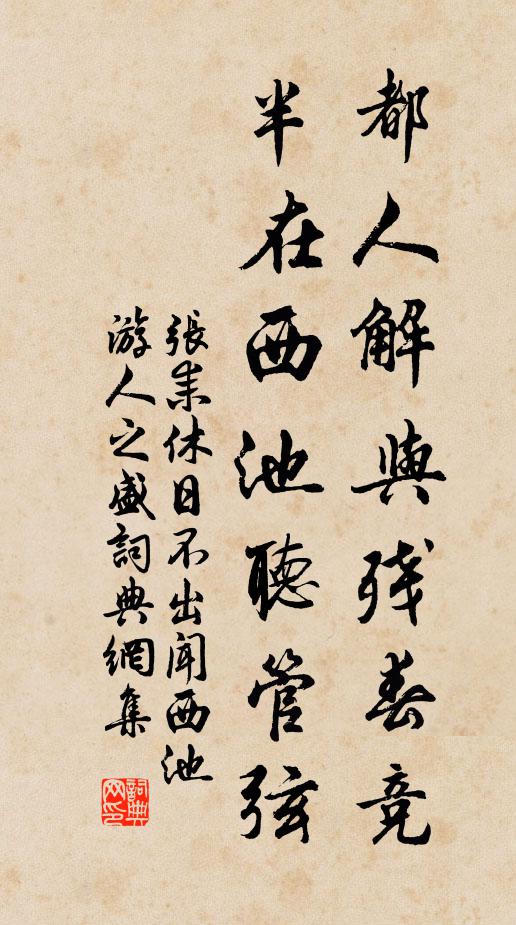 都人解與殘春竞
半在西池聽管弦
張耒休日不出聞西池
游人之盛詞典網集
詞典网印